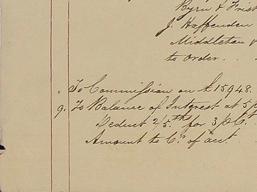 Byrn & 
J. Haffenden
Middleton &
to Order . .
" To Commission on £15948.
9. To Balance of Interest at 5 p
Deduct 2/5ths for 3 p Ct.
Amount to Cr. of acct.